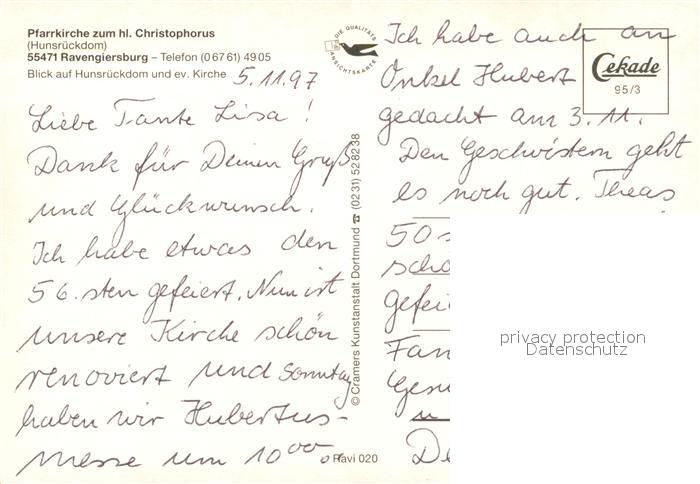 Pfarrkirche zum hl. Christophorus
(Hunsrückdom)
55471 Ravengiersburg – Telefon (0 67 61) 49 05
Blick auf Hunsrückdom und ev. Kirche
5.11.97
Liebe Tante Lisa!
Dank für Deinen Gruß
und Glückwunsch.
Ich habe etwas den
56.sten gefeiert. Nun ist
unsere Kirche schön
renoviert und Sonntag
haben wir Hubertus-
messe um 10°°.
DIE QUALITÄTS
ANSICHTSKARTE
© Cramers Kunstanstalt Dortmund ☎ (02 31) 52 82 38
Ravi 020
Ich habe auch an
Onkel Hubert
gedacht am 3.11.
Den Geschwistern geht
es noch gut. Theas
50s
scho
gefei
Fan
Gesu
u
De
Cekade
95/3
privacy protection
Datenschutz